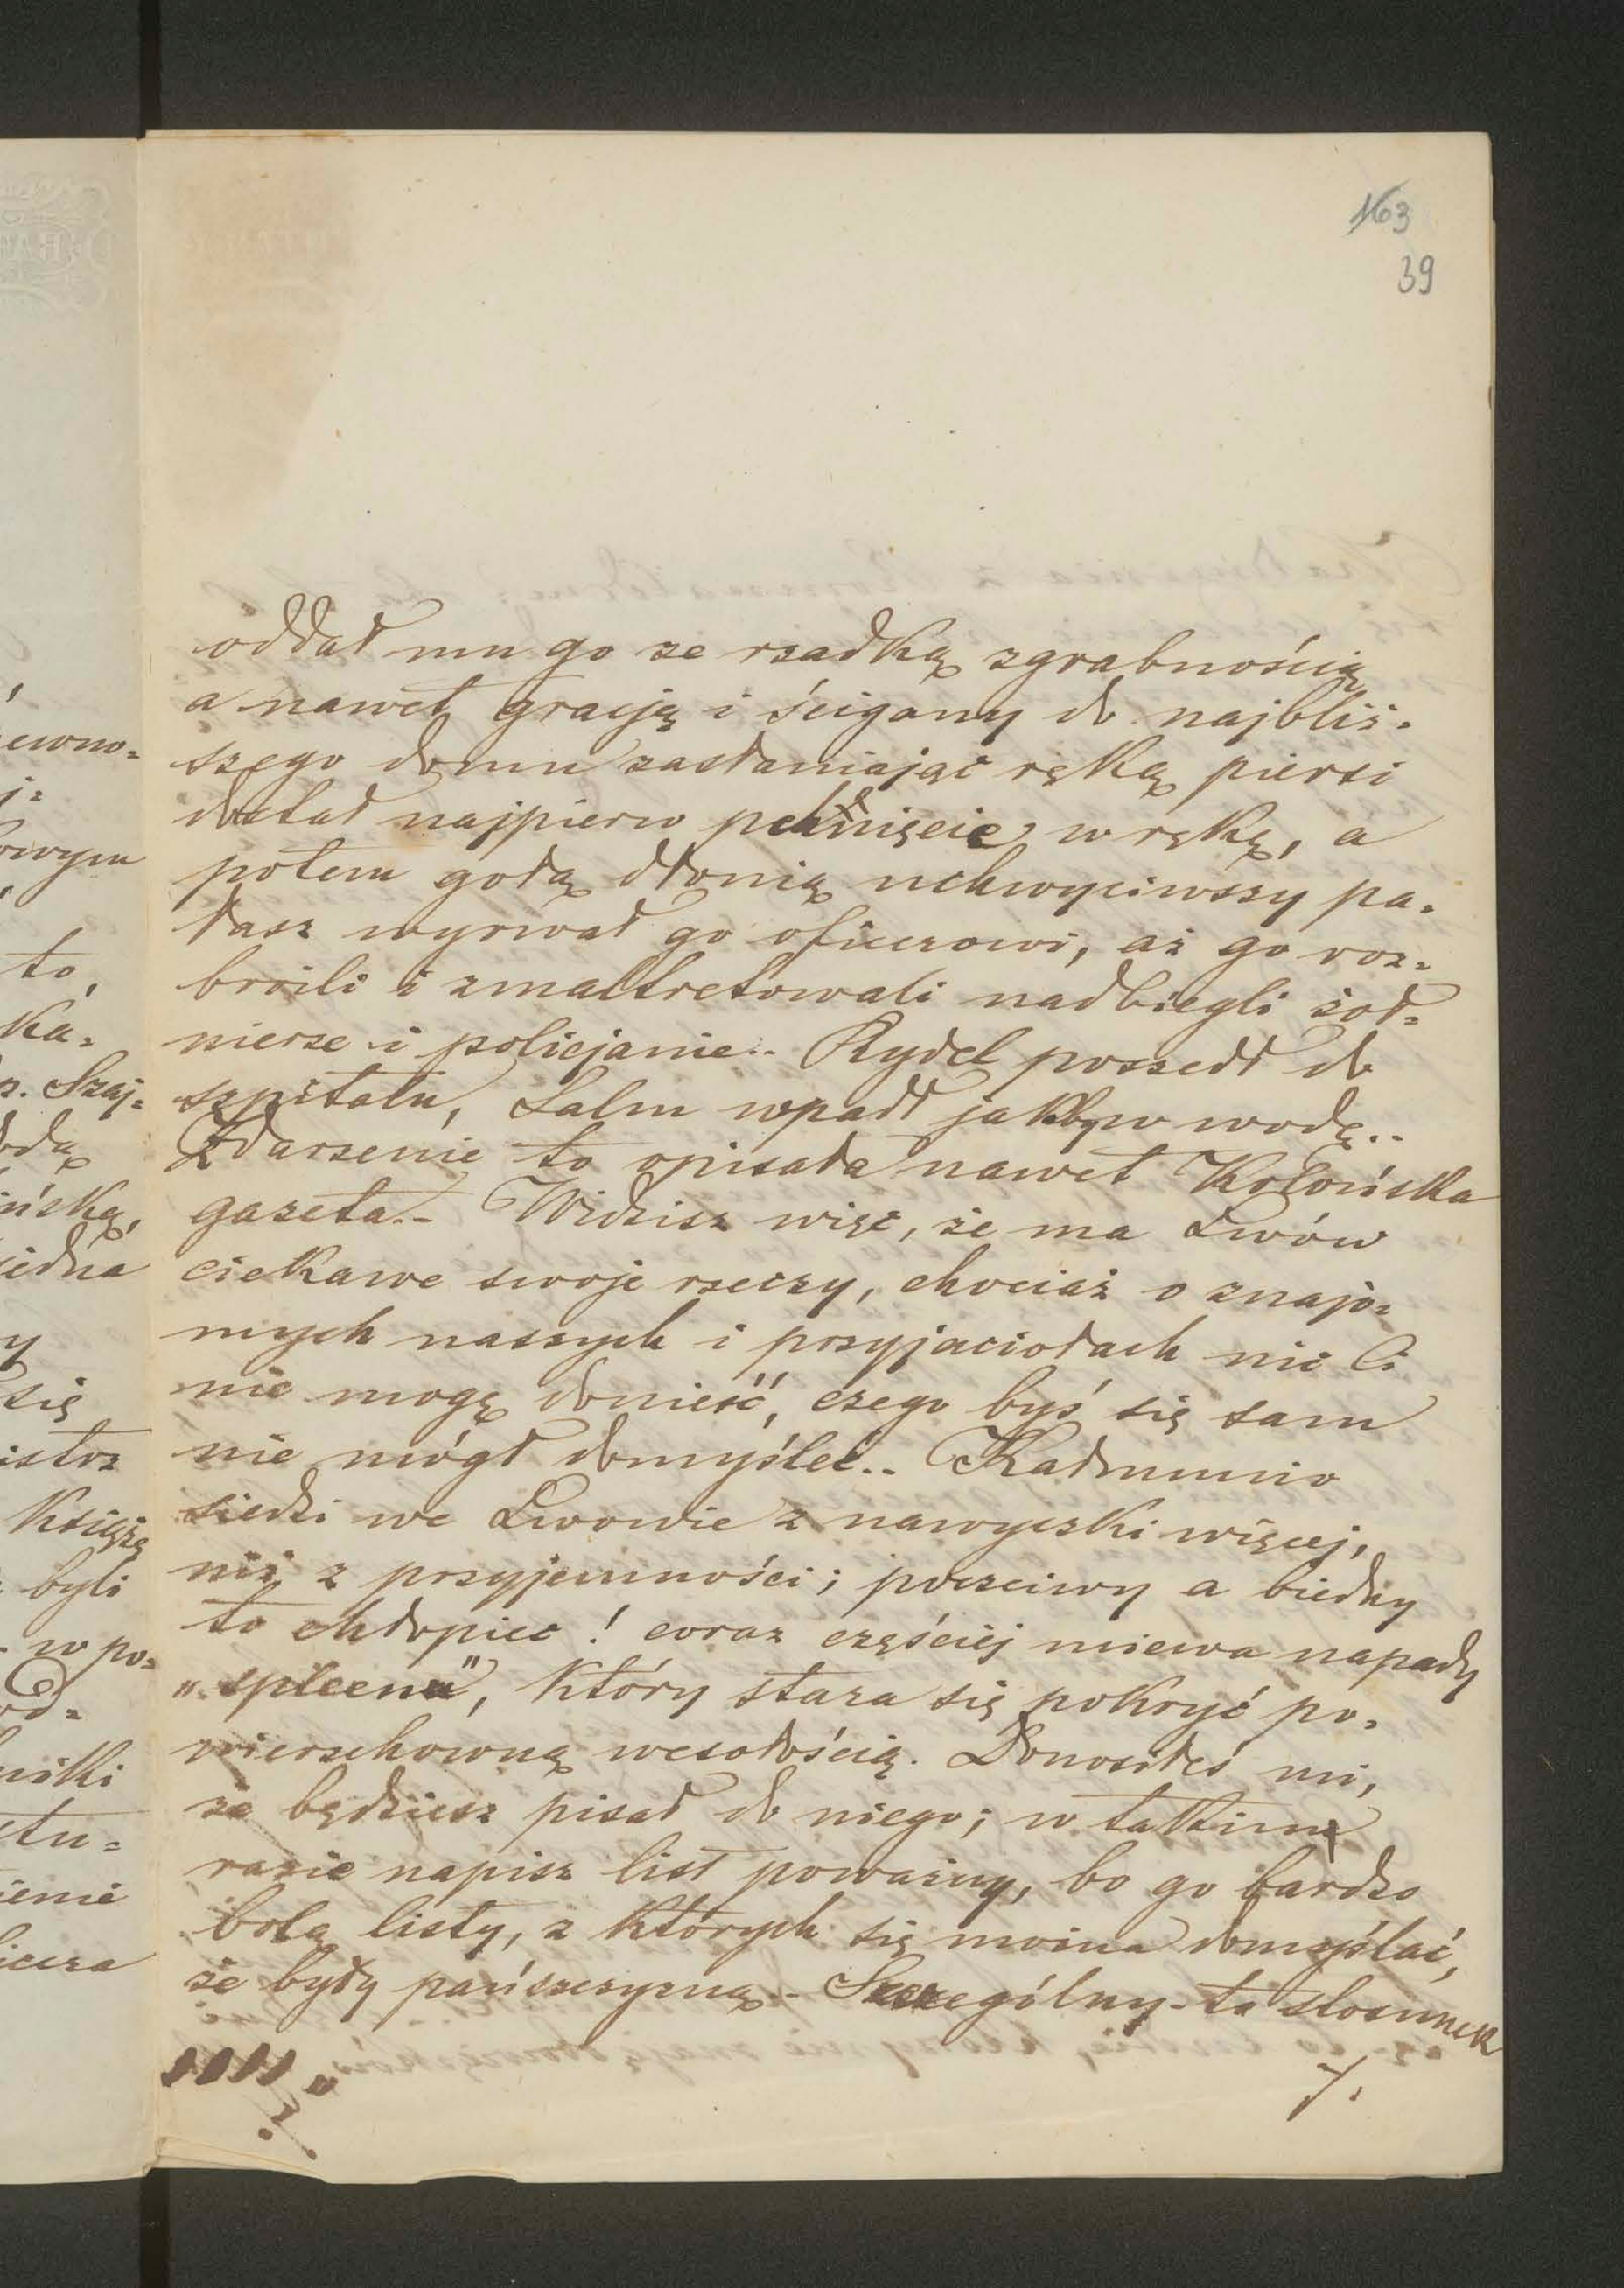 163
39
oddał mu go ze rzadką zgrabnością
a nawet gracją i ścigany do najbliż=
szego domu zasłaniając ręką piersi
dostał najpierw pchnięcie w rękę, a
potem gołą dłonią uchwyciwszy pa=
łasz wyrwał go oficerowi, aż go roz=
broili i zmaltretowali nadbiegli żoł=
nierze i policjanie.. Rydel poszedł do
szpitalu, Salm wpadł jakby w wodę..
Zdarzenie to opisała nawet Kolońska
gazeta.- Widzisz więc, że ma Lwów
ciekawe swoje rzeczy, chociaż o znajo=
mych naszych i przyjaciołach nic Ci
nie mogę donieść, czego byś się sam
nie mógł domyśleć.. Kadmunio
siedzi we Lwowie z nawyczki więcej,
niż z przyjemności; poczciwy a biedny
to chłopiec! coraz częściej miewa napady
„spleenu", który stara się pokryć po=
wierzchowną wesołością. Donosiłeś mi,
że będziesz pisał do niego; w takim
razie napisz list poważny, bo go bardzo
bolą listy, z których się można domyślać,
że były pańszczyzną.- Szczególny-to stosunek
7.
ewno=
owym
to,
ka=
p. Szaj=
ińską,
jedna
y
się
istoz
Księżę
byli
w po=
od=
niki
stu=
ienie